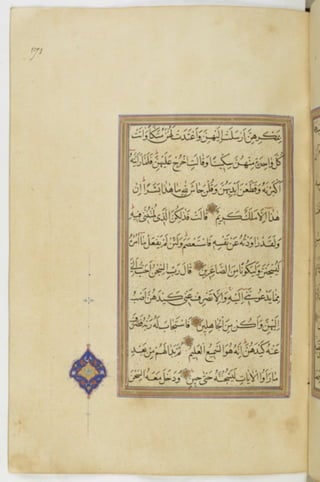 بِمَكْرِهِنَّ اَرْسَلَتْ اِلَيْهِنَّ وَاَعْتَدَتْ لَهُنَّ مُتَّكَأً وَاٰتَتْ
كُلَّ وَاحِدَةٍ مِنْهُنَّ سِكِّينًا وَقَالَتِ اخْرُجْ عَلَيْهِنَّ فَلَمَّا رَاَيْنَهُ
اَكْبَرْنَهُ وَقَطَّعْنَ اَيْدِيَهُنَّ وَقُلْنَ حَاشَ لِلّٰهِ مَا هٰذَا بَشَرًا اِنْ
هٰذَا اِلَّا مَلَكٌ كَرِيمٌ قَالَتْ فَذٰلِكُنَّ الَّذِي لُمْتُنَّنِي فِيهِ
وَلَقَدْ رَاوَدْتُهُ عَنْ نَفْسِهِ فَاسْتَعْصَمَ وَلَئِنْ لَمْ يَفْعَلْ مَا اٰمُرُهُ
لَيُسْجَنَنَّ وَلَيَكُونًا مِنَ الصَّاغِرِينَ قَالَ رَبِّ السِّجْنُ اَحَبُّ اِلَيَّ
مِمَّا يَدْعُونَنِي اِلَيْهِ وَاِلَّا تَصْرِفْ عَنِّي كَيْدَهُنَّ اَصْبُ
اِلَيْهِنَّ وَاَكُنْ مِنَ الْجَاهِلِينَ فَاسْتَجَابَ لَهُ رَبُّهُ فَصَرَفَ
عَنْهُ كَيْدَهُنَّ اِنَّهُ هُوَ السَّمِيعُ الْعَلِيمُ ثُمَّ بَدَا لَهُمْ مِنْ بَعْدِ
مَا رَاَوُا الْاٰيَاتِ لَيَسْجُنُنَّهُ حَتّٰى حِينٍ وَدَخَلَ مَعَهُ السِّجْنَ